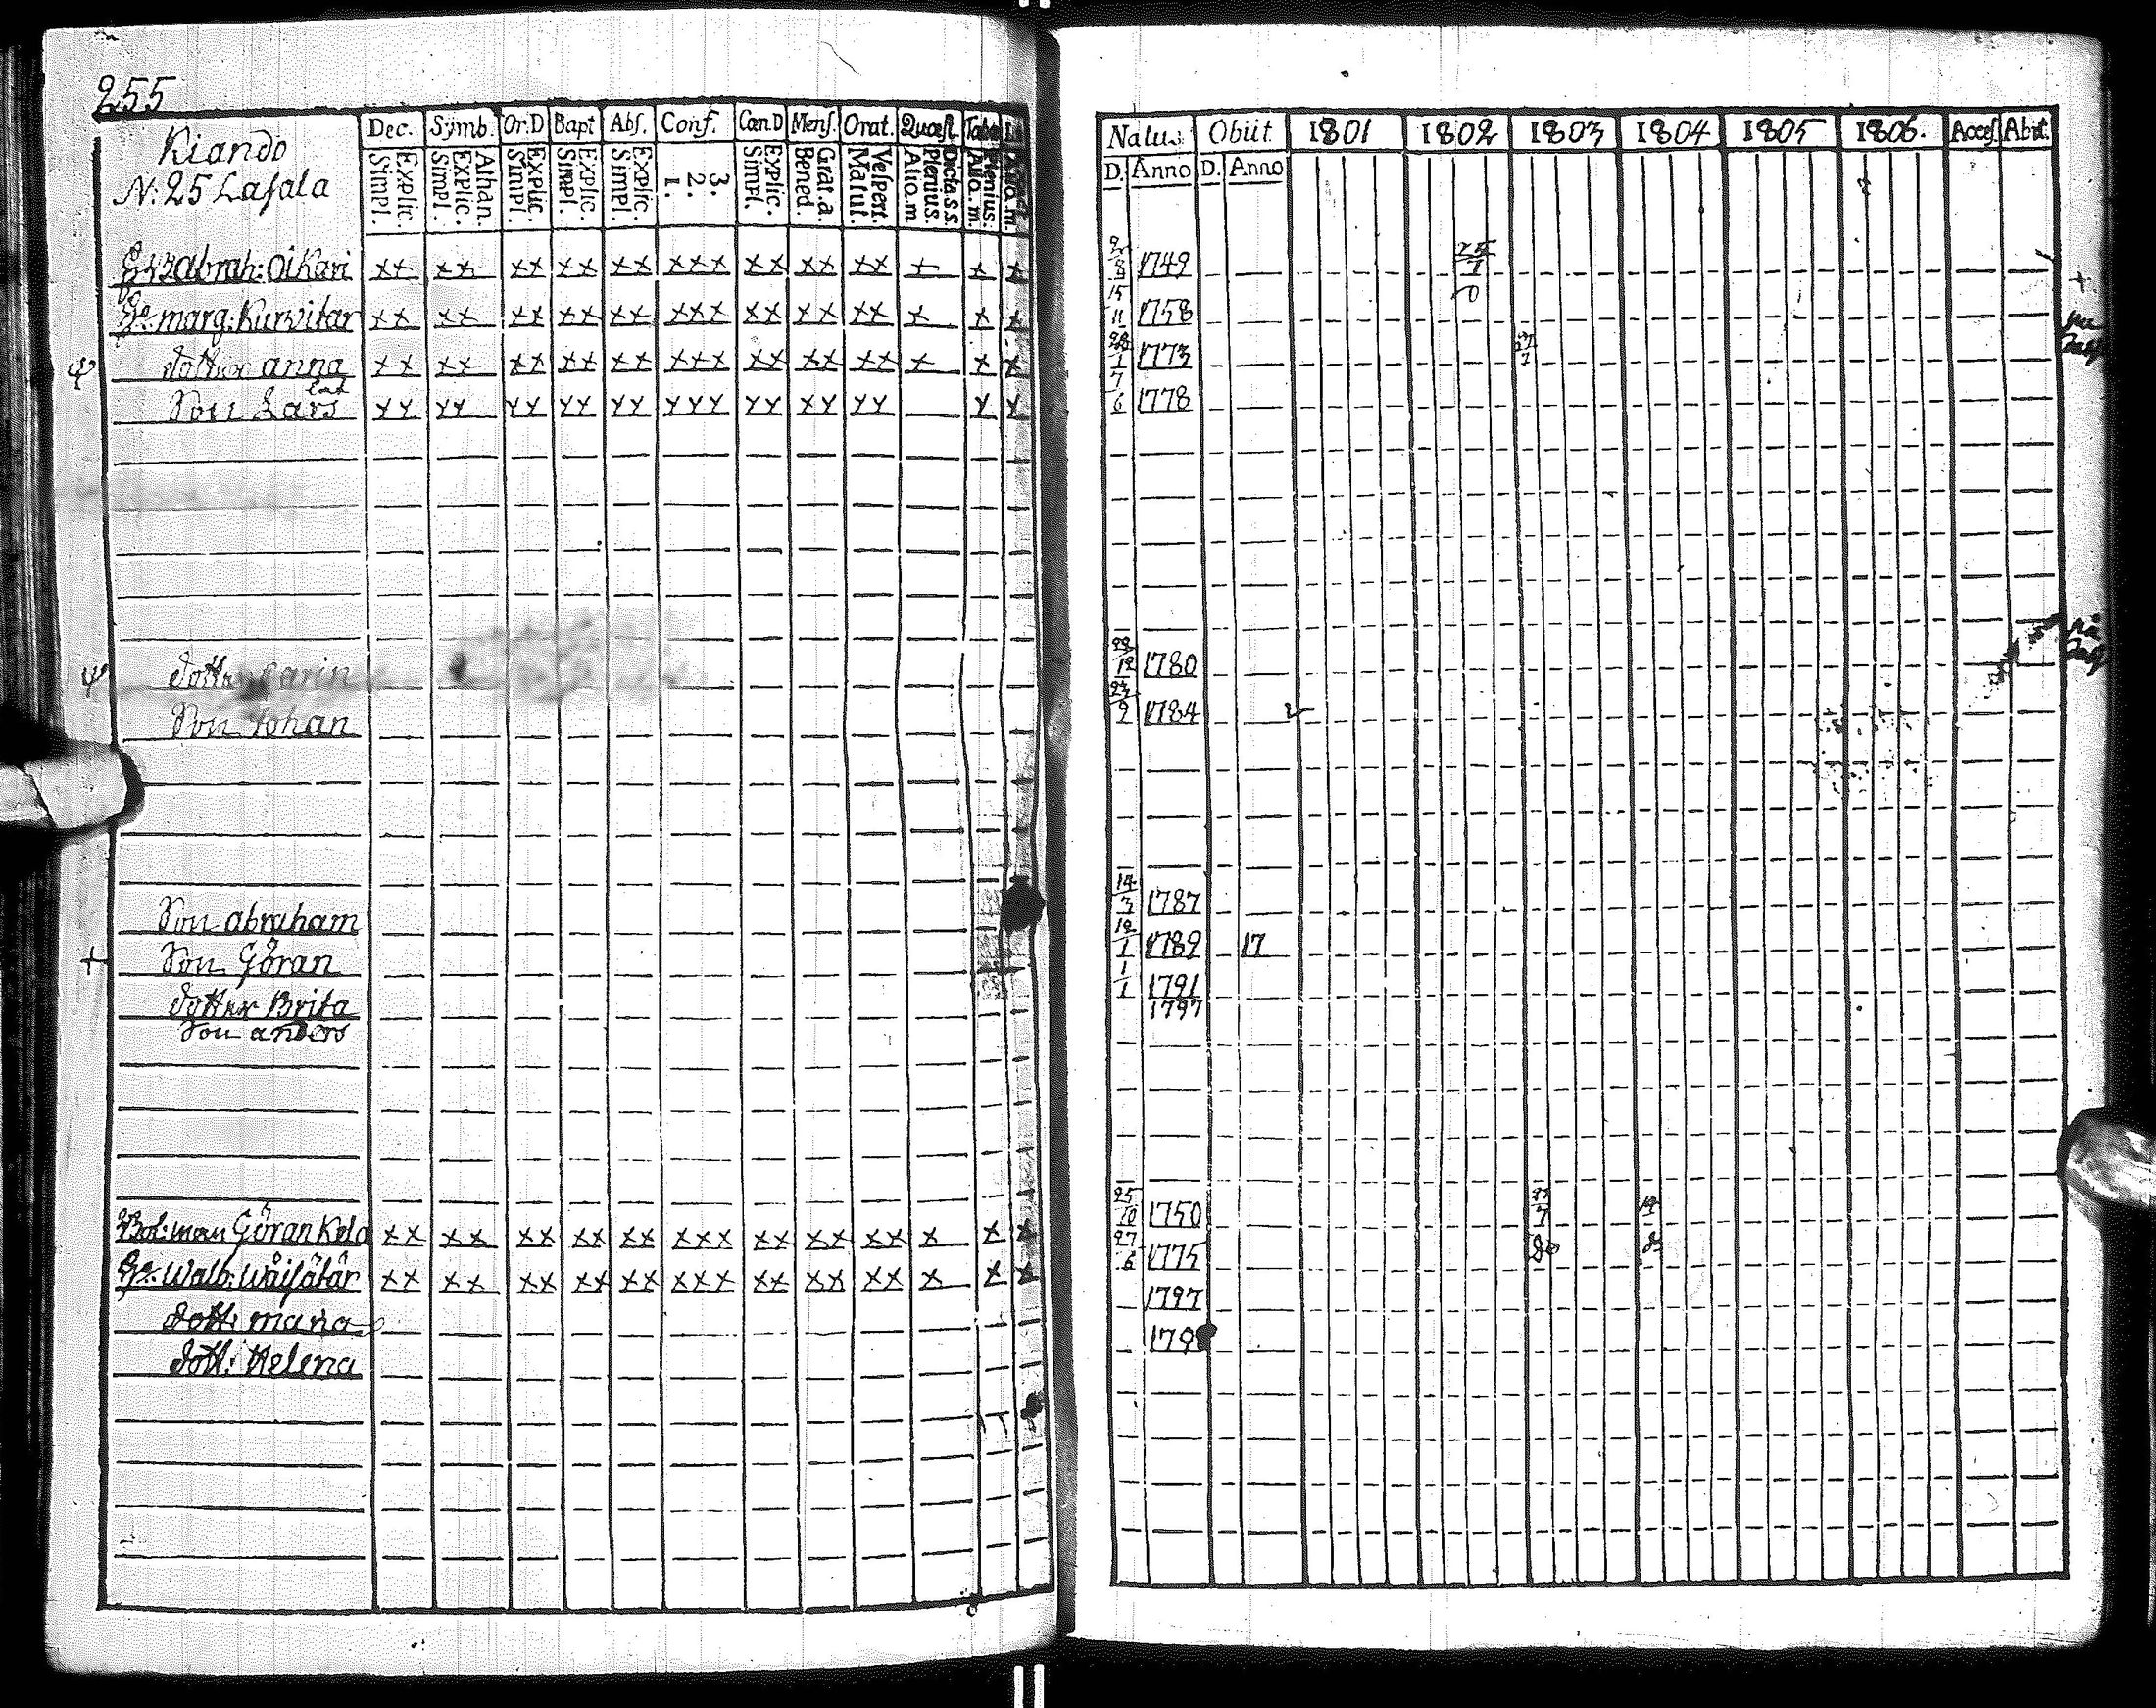 255
Dec. Symb. Or.D Bapt Abs. Conf. Cœn.D Mens. Orat. Quæst. Tabu
Simpl. Explic. Simpl. Explic. Athan. Simpl. Explic. Simpl. Explic. Simpl. Explic. 1. 2. 3. Simpl. Explic. Bened. Grat.a. Matut. Vespert. Alio.m. Plenius. Docta.s.s. Alio.m. Plenius.
Natus Obiit 1801 1802 1803 1804 1805 1806. Acces. Abiit.
D. Anno D. Anno
Riando
N: 25 Lasala
abrah: Oikari xx xx xx xx xx xxx xx xx xx x x x 1749 25/7
marg: Kurvitar xx xx xx xx xx xxx xx xx xx x x x 15/11 1758
ψ dotter anna xx xx xx xx xx xxx xx xx xx x x x 1773
Son Lars xx xx xx xx xx xxx xx xx xx x x 7/6 1778
ψ dotter Carin 1780
Son Johan 1784
Son abraham 14/3 1787
+ Son Göran 1789 17
dotter Brita 1/1 1791
Son anders 1797
Bol: man Göran xx xx xx xx xx xxx xx xx xx x x x 25/10 1750
Walb: Wäisätär xx xx xx xx xx xxx xx xx xx x x x 27/6 1775
dott: maria 1797
dott: Helena 179